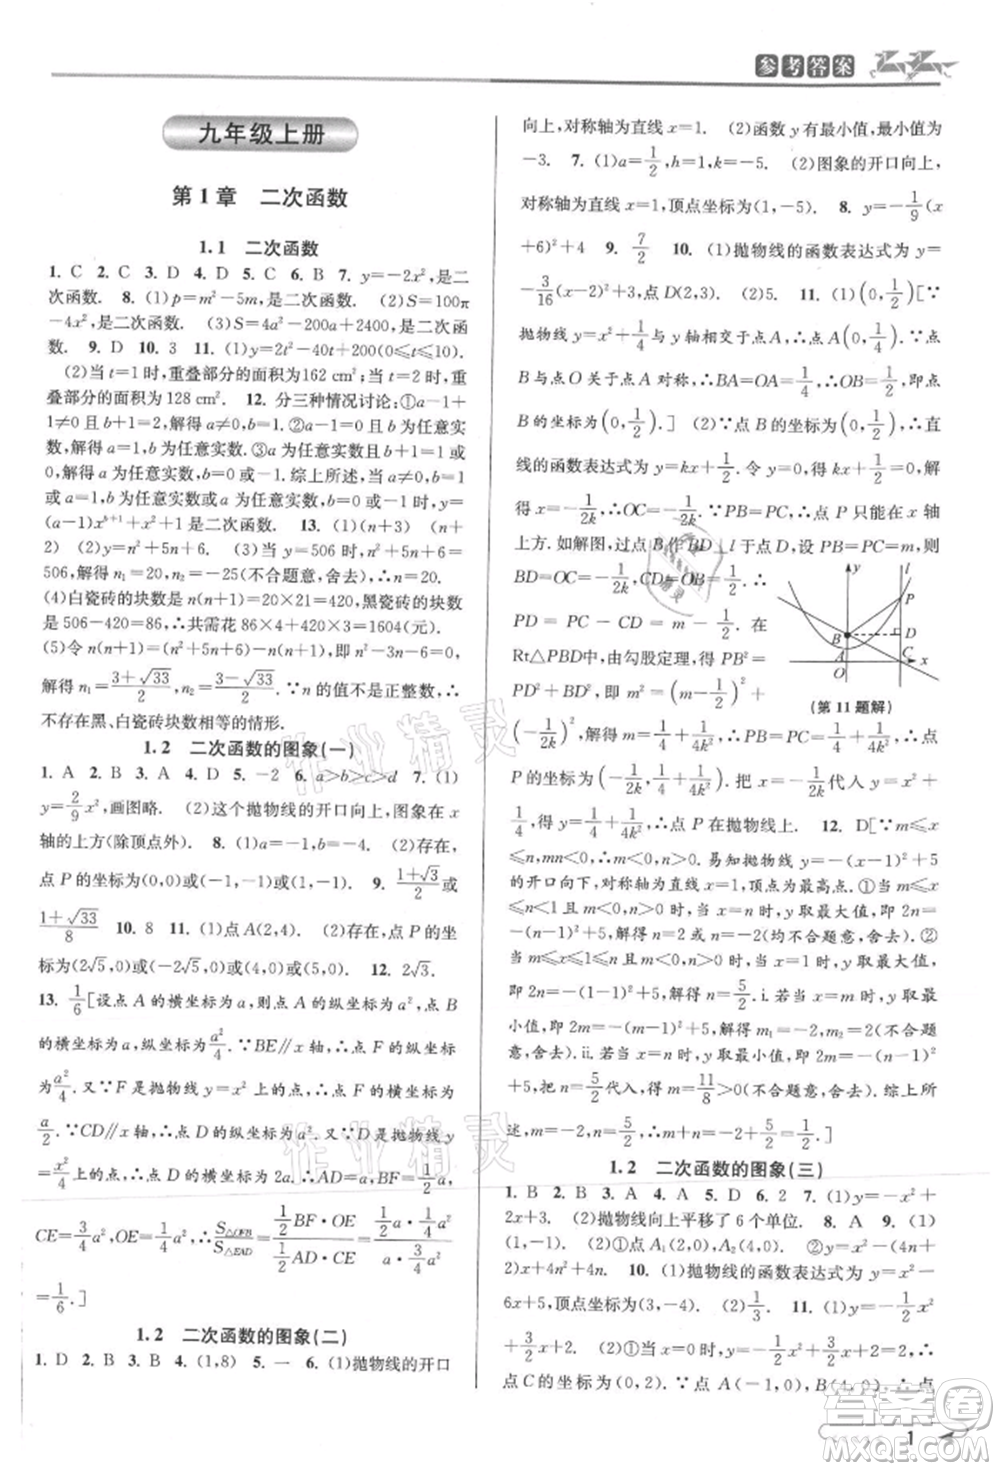 参考答案
九年级上册
第1章 二次函数
1.1 二次函数
1. C 2. C 3. D 4. D 5. C 6. B 7. y=-2x²,是二
次函数. 8. (1)p=m²-5m,是二次函数. (2)S=100π
-4x²,是二次函数. (3)S=4a²-200a+2400,是二次函
数. 9. D 10. 3 11. (1)y=2t²-40t+200(0≤t≤10).
(2)当t=1时,重叠部分的面积为162 cm²;当t=2时,重
叠部分的面积为128 cm². 12. 分三种情况讨论:①a-1+
1≠0且b+1=2,解得a≠0,b=1.②a-1=0且b+1为任意
实数,解得a=1,b为任意实数.③a为任意实数且b+1=1或
0,解得a为任意实数,b=0或-1.综上所述,当a≠0,b=1
或a=1,b为任意实数或a为任意实数,b=0或-1时,y=
(a-1)x^{b+1}+x²+1是二次函数. 13. (1)(n+3) (n+
2) (2)y=n²+5n+6 (3)当y=506时,n²+5n+6=506,
解得n₁=20,n₂=-25(不合题意,舍去).∴n=20.
(4)白瓷砖的块数是n(n+1)=20×21=420,黑瓷砖的块数
是506-420=86,∴共需花86×4+420×3=1604(元).
(5)令n(n+1)=(n²+5n+6)-n(n+1),即n²-3n-6=0,
解得n₁=(3+√33)/2,n₂=(3-√33)/2.∵n的值不是正整数,∴
不存在黑、白瓷砖块数相等的情形.
1.2 二次函数的图象(一)
1. A 2. B 3. A 4. D 5. -2 6. a>b>c>d 7. (1)
y=2/9x²,画图略. (2)这个抛物线的开口向上,图象在x
轴的上方(除顶点外). 8. (1)a=-1,b=-4. (2)存在,
点P的坐标为(0,0)或(-1,-1). 9. (1+√3)/2或
(1+√33)/8 10. 8 11. (1)点A(2,4). (2)存在,点P的坐标
为(2√5,0)或(-2√5,0)或(4,0)或(5,0). 12. 2√3.
13. 1/6[设点A的横坐标为a,则点A的纵坐标为a²,点B
的横坐标为a,纵坐标为a²/4.∵BE∥x轴,∴点F的纵坐标为
a²/4.又∵F是抛物线y=x²上的点,∴点F的横坐标为x=√y=
a/2.∵CD∥x轴,∴点D的纵坐标为a².又∵D是抛物线y
=x²/4上的点,∴点D的横坐标为x=√4y=2a.∴AD=a,BF=a/2,
CE=3/4a²,OE=1/4a².∴S△OFB/S△EAD=(1/2BF·OE)/(1/2AD·CE)=(1/8)/(3/4)=
1/6.]
1.2 二次函数的图象(二)
1. D 2. B 3. B 4. (1,8) 5. 一 6. (1)抛物线的开口
向上,对称轴为直线x=1. (2)函数y有最小值,最小值为
-3. 7. (1)a=1/2,h=1,k=-5. (2)图象的开口向上,
对称轴为直线x=1,顶点坐标为(1,-5). 8. y=-1/9(x
+6)²+4 9. 7/2 10. (1)抛物线的函数表达式为y=
-3/16(x-2)²+3,点D(2,3). (2)5. 11. (1)(0,1/4)[∵
抛物线y=x²+1/4与y轴交于点A,∴点A(0,1/4).∵点B
与点O关于点A对称,∴BA=OA=1/4,∴OB=1/2,即点
B的坐标为(0,1/2).] (2)∵点B的坐标为(0,1/2),∴直线
l的函数表达式为y=kx+1/2.令y=0,得kx+1/2=0,解
得x=-1/2k,∴OC=-1/2k.∵PB=PC,∴点P只能在x轴
上方.如解图,过点B作BD⊥l于点D,设PB=PC=m,则
BD=OC=-1/2k,CD=OB=1/2,∴
PD=PC-CD=m-1/2.在
Rt△PBD中,由勾股定理,得PB²=
PD²+BD²,即m²=(m-1/2)²+
(-1/2k)²,解得m=1/4+1/4k²,∴PB=PC=1/4+1/4k²,∴点
P的坐标为(-1/2k,1/4+1/4k²).把x=-1/2k代入y=x²+
1/4,得y=1/4+1/4k²,∴点P在抛物线上. 12. D[∵m≤x
≤n,mn<0,∴m<0,n>0.易知抛物线y=-(x-1)²+5
的开口向下,对称轴为直线x=1,顶点为最高点.①当m≤x
≤0<n<1时,当x=m时,y取最小值,即2m=-(m-1)²+
5,解得m=2或m=-2(均不合题意,舍去).②
y
l
P
B
D
A
O
C
x
(第11题解)
1.2 二次函数的图象(三)
1. B 2. B 3. A 4. A 5. D 6. 2 7. (1)y=-x²+
2x+3. (2)抛物线向上平移了6个单位. 8. A 9. (1)
(1,-1). (2)①点A₁(2,0),A₂(4,-4). ②y=-x²+(4n+
2)x-4n²-4n. 10. (1)抛物线的函数表达式为y=x²
-6x+5,顶点坐标为(3,-4). (2)1/3. 11. (1)y=1/2x²+
3/2x+2. (2)当x=0时,y=-1/2x²+3/2x+2=2,∴
点C的坐标为(0,2).又∵点A(-1,0),B(4,0),∴点
1
作业精灵
作业精灵
答案圈
MXQE.COM